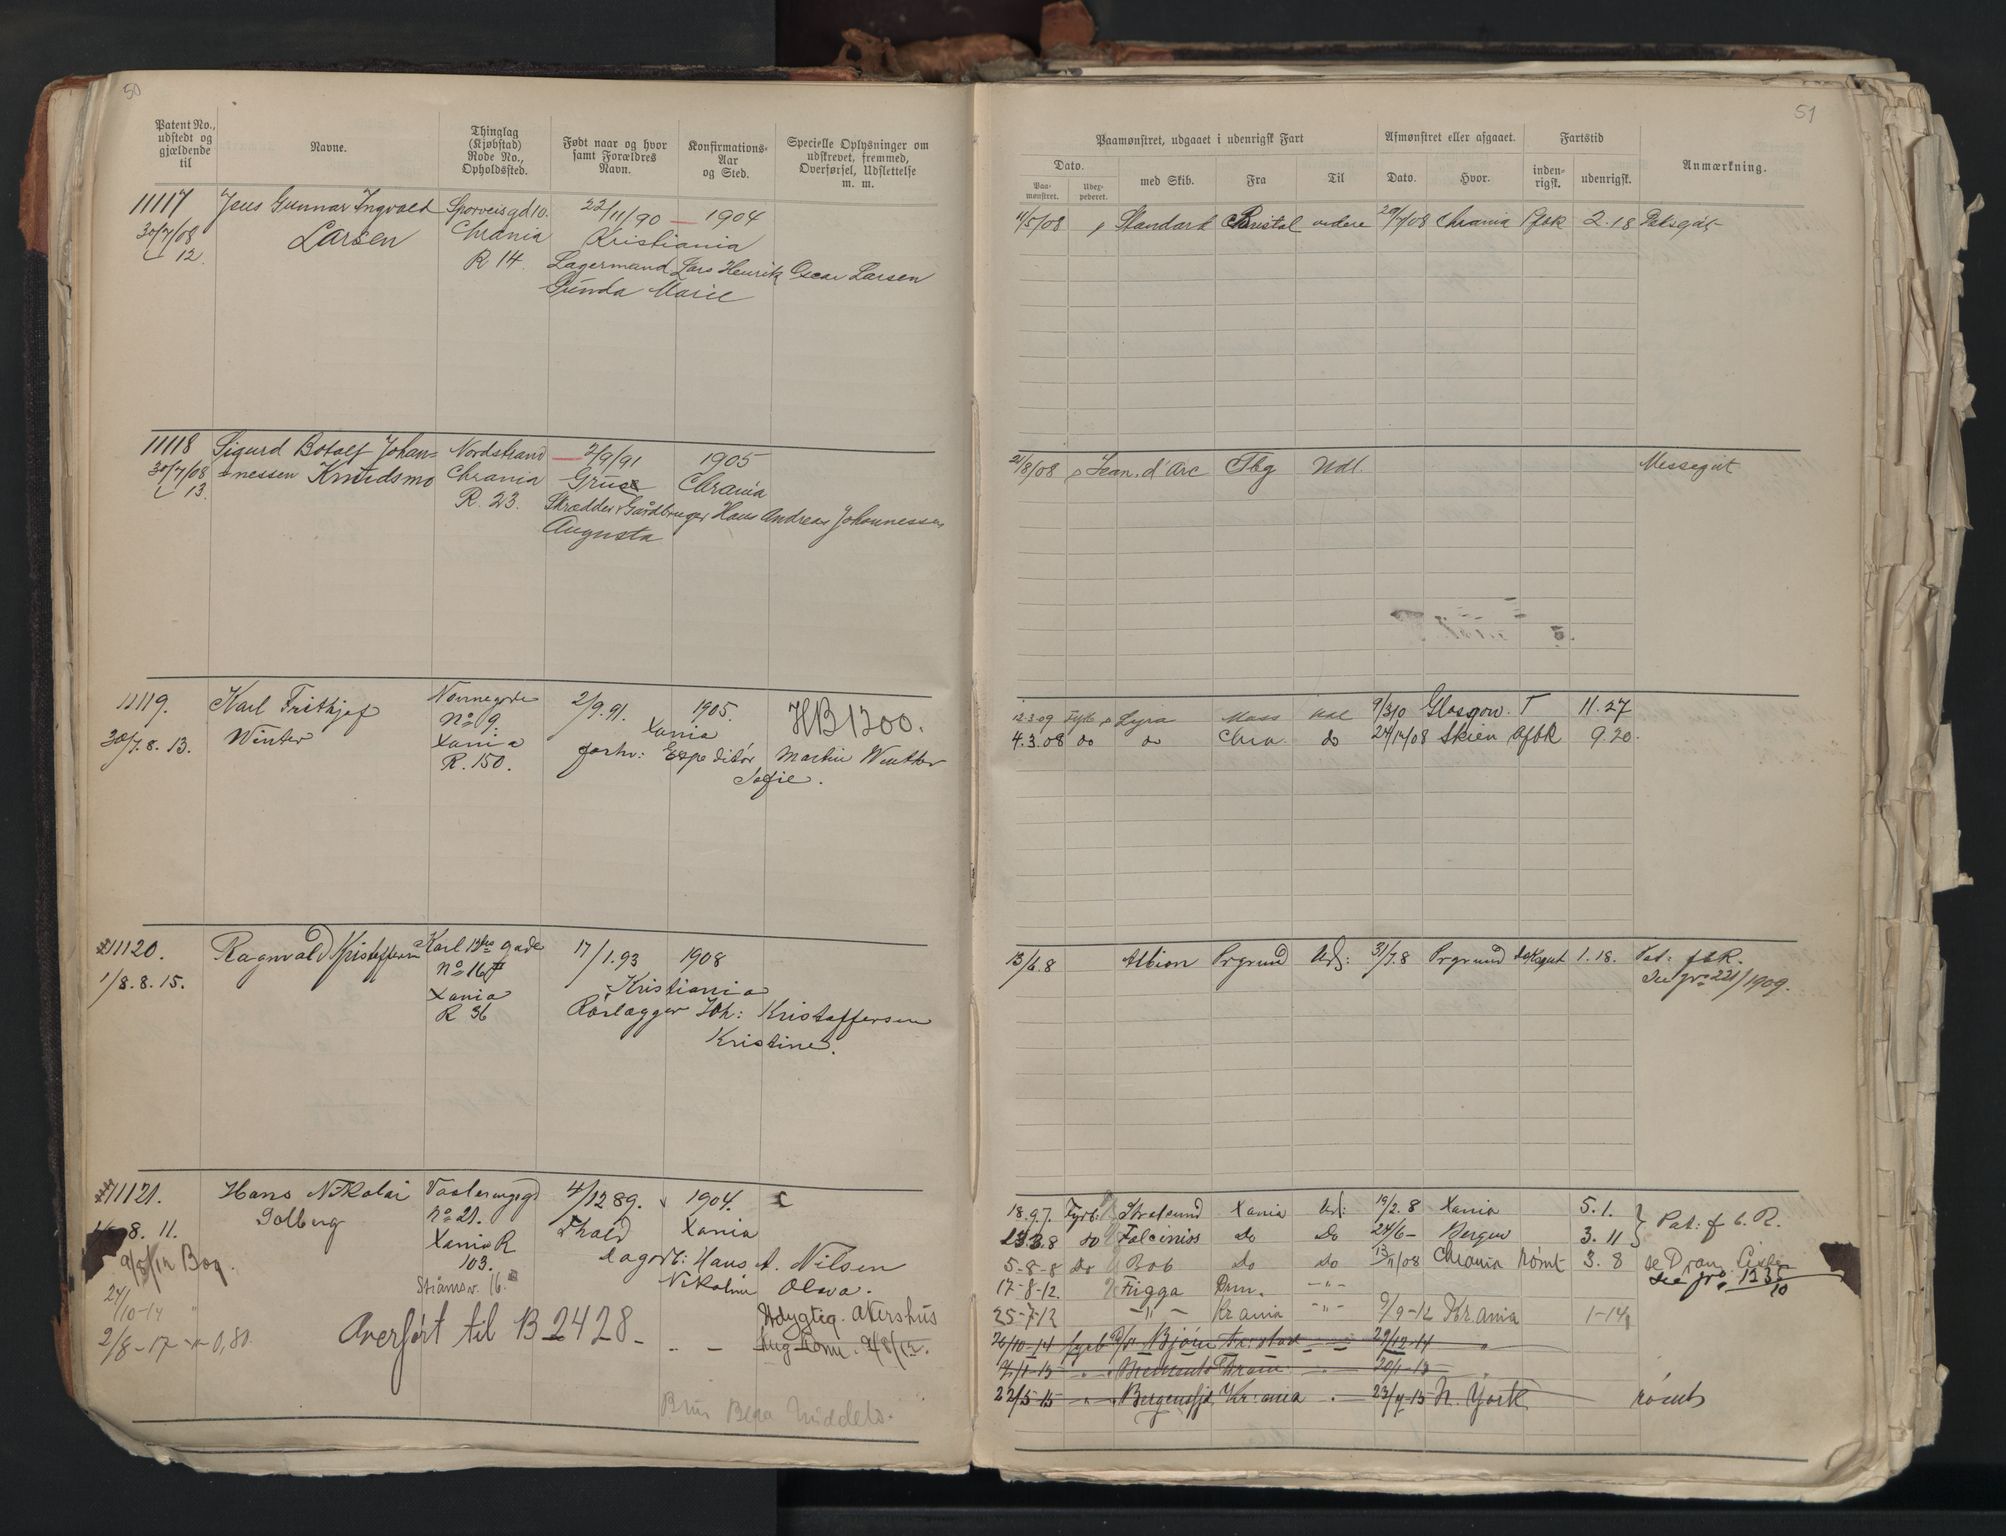 50
Patent No., udstedt og gjældende til
Navne.
Thinglag (Kjøbstad) Rode No., Opholdssted.
Født naar og hvor samt Forældres Navn.
Konfirmations-Aar og Sted.
Specielle Oplysninger om udskrevet, fremmed, Overførsel, Udslettelse m. m.
11117 Jens Gunnar Ingvald Sporveisgd 10. 22/11/90 — 1904
30/7/08 Larsen Chrania Kristiania
12. R 14. Lagermand Lars Henrik Oscar Larsen
Gunda Marie
11118 Sigurd Botolf Johan= Nordstrand — 2/9/91 1905
30/7/08 nessen Knudsmo Chrania Grue Chrania
13. R. 23. Skrædder & Gårdbruger Hans Andreas Johannessen
Augusta
11119. Karl Frithjof 2/9.91. 1905. HB1200.
30/7.8.13. Winter No 9. Xania
Xania forhv: Expeditør Martin Winther
R. 150. Sofie.
11120. Ragnvald Kristoffersen Karl 12tes gade 17/1.93 1908
1/8.8.15. No 16 Kristiania
Xania Rørlægger Joh: Kristoffersen
R 36 Kristine.
11121. Hans Nikolai 4/12 89. 1904.
8.11. Solberg No 21. Thald Xania
9/5/12 Bog. Xania R dagarb: Hans A. Nilsen
103. Nikoline Olava.
Strømsv. 16
24/10-14 "
Udygtig. Akershus
2/8-17 -"- 0,80. Overført til B 2428 -
51
Paamønstret, udgaaet i udenrigsk Fart
Afmønstret eller afgaaet.
Fartstid
Anmærkning.
Dato.
Paamønstret.
Uderpederet.
med Skib.
Fra
Til
Dato.
Hvor.
indenrigsk.
udenrigsk.
11/5/08 Standard Bristal videre 29/7/08 Chrania Afbk 2.18 Dæksgut
21/8/08 Jean. d'Arc Tbg Udl. Messegut
12.3.09 Fyrb Lyra Moss Udl 9/3 10 Glasgow. T 11.27
4.3.08 do do Chra. do 24/12/08 Skien Afbk 9.20.
13/6.8 Albion Prgrund Uds: 31/7.8 Prgrund Dæksgut 1.18. Pat: f&R.
See jro 221/1909.
18.9.7. Fyrb: Stralsund Xania Ud: 19/2.8 Xania 5.1.
23.3.8 do Falcinios Do Do 24/6 - Bergen 3.11 Pat: f b. R.
5-8-8 Do Bob Do Do 13/11/08 Chrania rømt 3.8
17-8-12. Frigga Drm. -"-
25-7-12 -"- Kr.ania -"- 9/9-12 Kr.ania 1-14
26/10-14 fyrb D/S Bjørn 29/12-14
20/1-15
22/5-15 -"- Bergensfj. Kr:ania - 23/7-15 N. York rømt